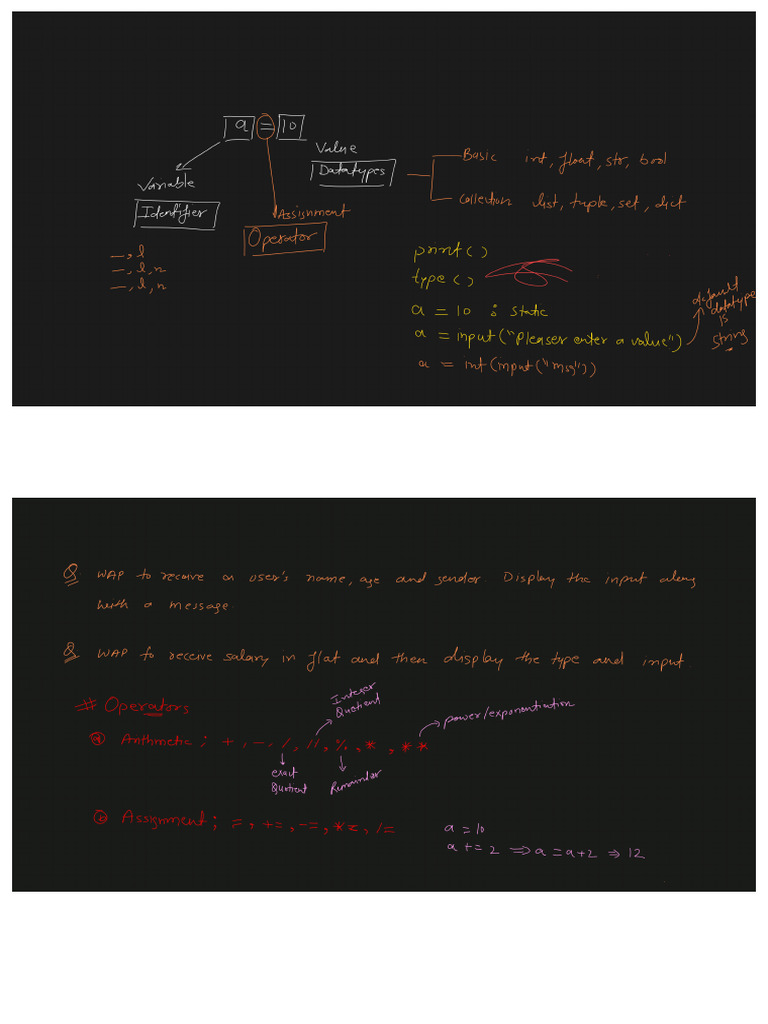 a = 10
Value
Datatypes
Basic int, float, str, bool
Collection list, tuple, set, dict
Variable
Identifier
Assisnment
Operator
_, l
_, l, n
_, l, n
print()
type()
a = 10 : static
a = input("Pleaser enter a value")
default
datatype
is
string
a = int(input("msg"))
Q WAP to receive a user's name, age and gender. Display the input along
with a message.
Q WAP to receive salary in flat and then display the type and input.
# Operators
Integer
Quotient
power/exponentiation
a) Arithmetic ; +, -, /, //, %, *, **
exact
Quotient
Remainder
b) Assignment ; =, +=, -=, *=, /=
a = 10
a += 2 ⇒ a = a+2 ⇒ 12